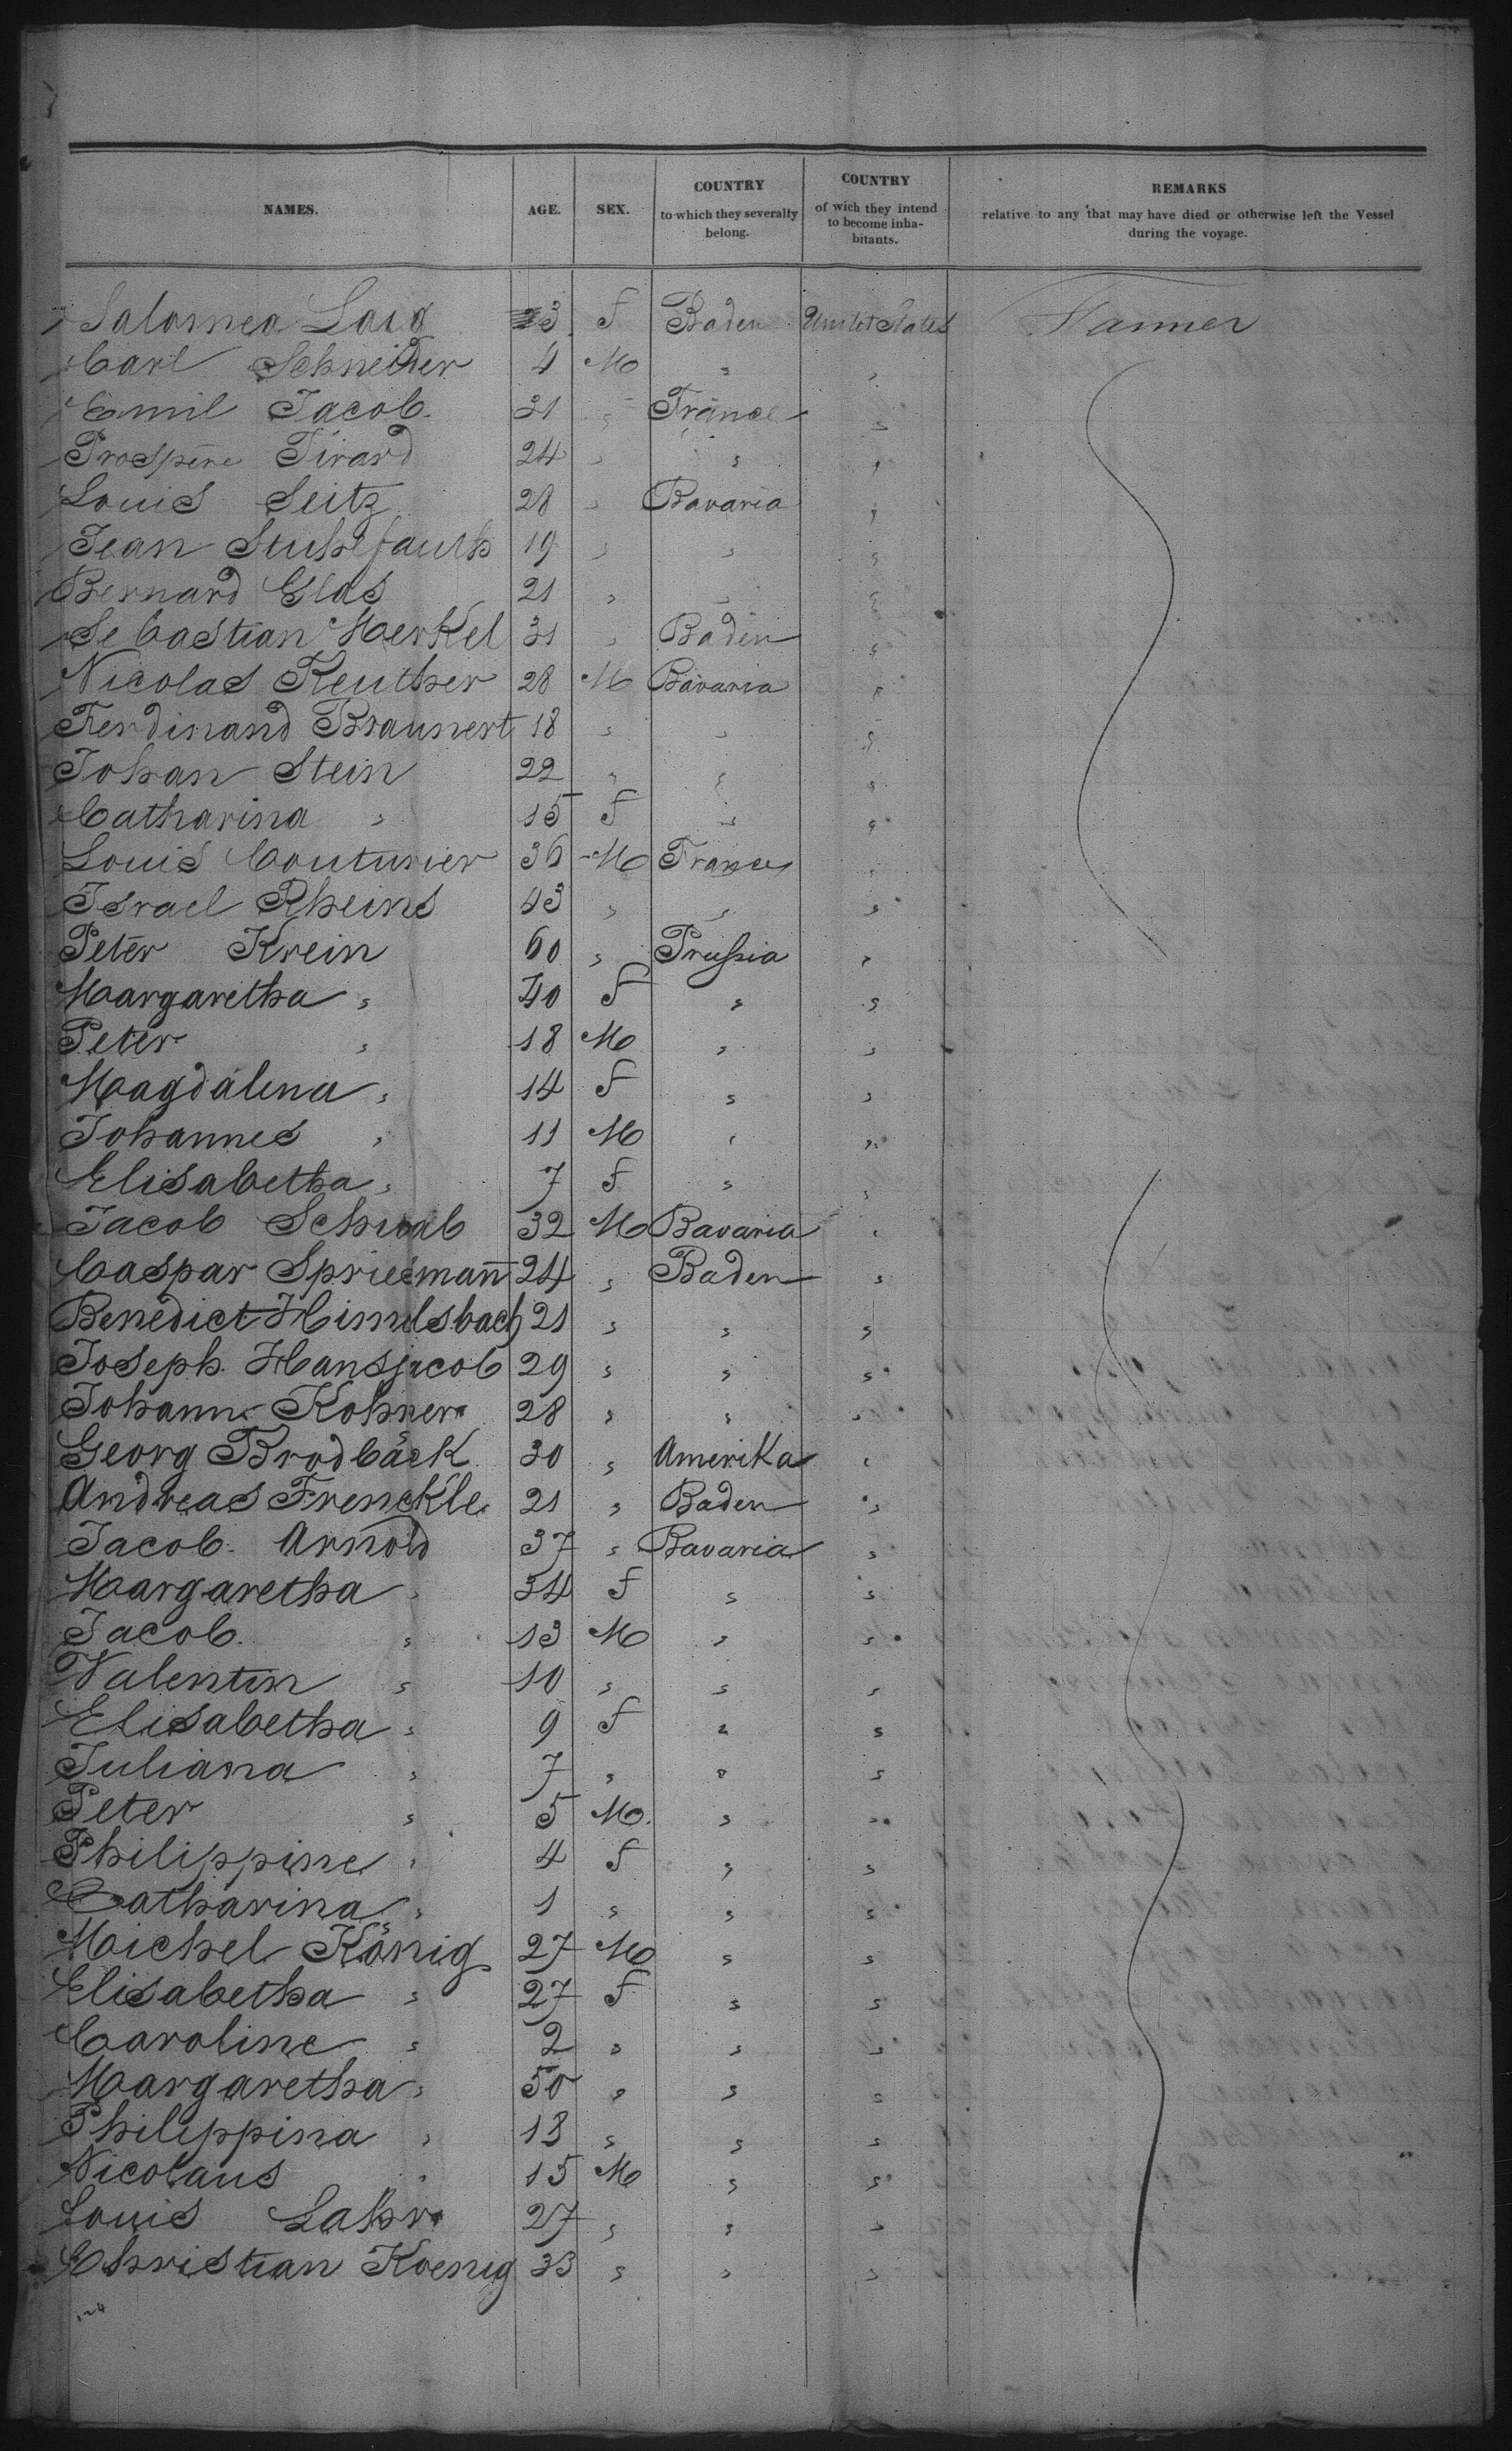 NAMES. AGE. SEX. COUNTRY to which they severally belong. COUNTRY of wich they intend to become inhabitants. REMARKS relative to any that may have died or otherwise left the Vessel during the voyage.
Salomea 23 f Baden United States Farmer
Carl Schneider 4 M " "
Emil Jacob 31 " France "
Prospère Tirard 24 " " "
Louis Seitz 28 " Bavaria "
Jean Stuhlfauth 19 " " "
Bernard Glas 21 " " "
Sebastian Merkel 31 " Baden "
Nicolas Reuther 28 M Bavaria "
Ferdinand Braunert 18 " " "
Johan Stein 22 " " "
Catharina " 15 f " "
Louis Couturier 36 M France "
Israel Rheins 43 " " "
Peter Krein 60 " Prussia "
Margaretha " 40 f " "
Peter " 18 M " "
Magdalena " 14 f " "
Johannes " 11 M " "
Elisabetha " 7 f " "
Jacob Schwab 32 M Bavaria "
Caspar Spriesmann 24 " Baden "
Benedict Himmelsbach 21 " " "
Joseph Hansjacob 29 " " "
Johann Kohner 28 " " "
Georg Brodbäck 30 " Amerika "
Andreas Frenckle 21 " Baden "
Jacob Arnold 37 " Bavaria "
Margaretha " 34 f " "
Jacob " 13 M " "
Valentin " 10 " " "
Elisabetha " 9 f " "
Juliana " 7 " " "
Peter " 5 M. " "
Philippine " 4 f " "
Catharina " 1 " " "
Michel König 27 M " "
Elisabetha " 27 f " "
Caroline " 2 " " "
Margaretha " 50 " " "
Philippina " 13 " " "
Nicolaus " 15 M " "
Louis Lahr 27 " " "
Christian Koenig 33 " " "